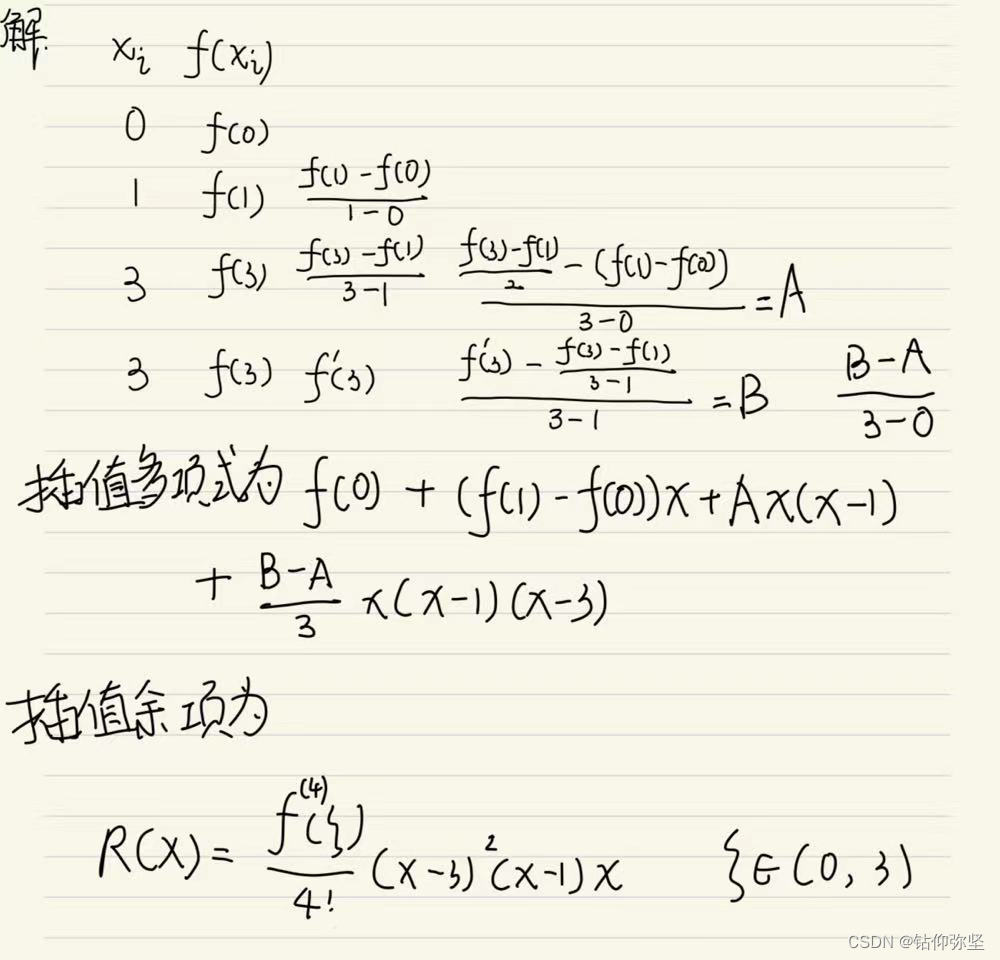 解.
xᵢ f(xᵢ)
0 f(0)
1 f(1) (f(1)-f(0))/(1-0)
3 f(3) (f(3)-f(1))/(3-1) ((f(3)-f(1))/2-(f(1)-f(0)))/(3-0)=A
3 f(3) f′(3) (f′(3)-(f(3)-f(1))/(3-1))/(3-1)=B (B-A)/(3-0)
插值多项式为 f(0)+(f(1)-f(0))x+Ax(x-1)
+(B-A)/3 x(x-1)(x-3)
插值余项为
R(x)=f⁽⁴⁾(ξ)/4! (x-3)²(x-1)x ξ∈(0,3)
CSDN @钻仰弥坚